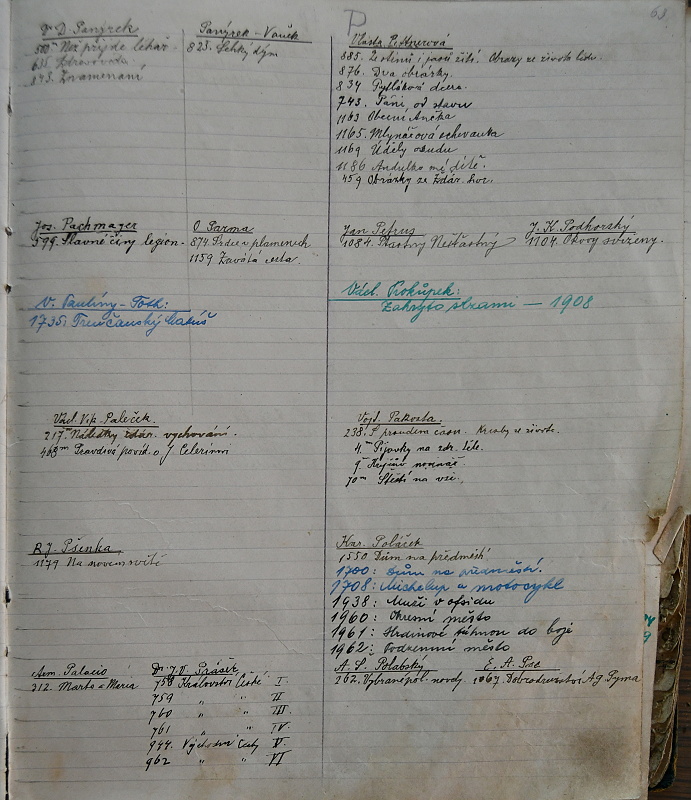 P
Dr D. Panýrek
Než přijde lékař.
843. Znamenání
Panýrek - Vaněk
823. Lehký dým
Vlasta Pittnerová
885. Ze stínů i jasů žití. Obrazy ze života lidu.
876. Dva obrázky.
834 Pytlákova dcera.
743. Páni od stavu
1163 Obecní Ančka
1165. Mlynářova schovanka
1169 Úděly osudu
1186 Andulko mé dítě.
459 Obrázky ze žďár. hor.
Jos. Pachmajer
599. Slavné činy legion.
O Parma
874 Srdce v plamenech
1159 Zavátá cesta.
Jan Petrus
1084. Šťastný Nešťastný
J. K. Podhorský
1104. Okovy svírzeny.
V. Paulíny - Toth:
1735: Trenčanský Matúš
Vděl. Prokůpek:
Zakryto slzami — 1908
Václ. Vip. Paleček.
217. Následky zdár. vychování.
463m Pravdivá povíd. o J. Celerinovi
Vojt. Pakosta.
238. S proudem času. Kresby ze života.
4.m Pijavky na zdr. těle.
9.
70m Štěstí na vsi.
R. J. Pšenka
1179 Na novem světě
Kar. Poláček
1550 Dům na předměstí
1700: Dům na předměstí.
1708: Michelup a motocykl
1938: Muži v ofsidu
1960: Okresní město
1961: Hrdinové táhnou do boje
1962: Podzemní město
Arm. Palacio
212. Marta a Maria
Dr. J. V. Prášek
758 Království České I.
759 " " II
760 " " III
761 " " IV
944. Východní Čechy V.
962 " " VI
A. S. Polabský
262. Vybrané pol. novely.
E. A. Poe
1067 Dobrodružství A. G. Pyma